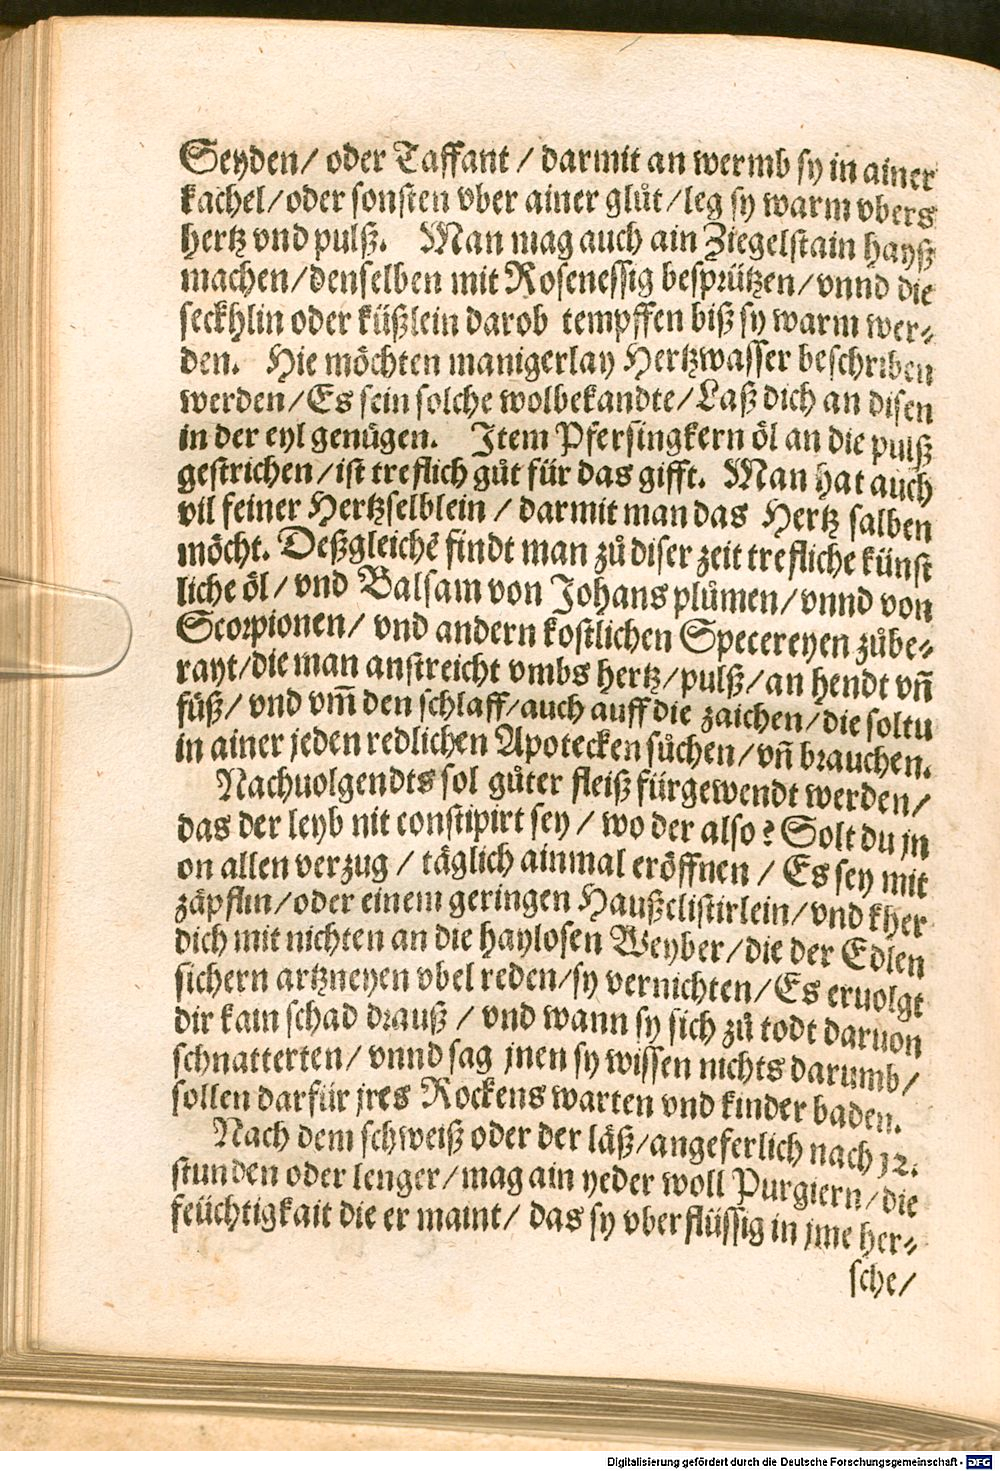 Seyden/ oder Taffant / darmit an wermb sy in ainer
kachel/oder sonsten vber ainer glůt/leg sy warm vbers
hertz vnd pulß. Man mag auch ain Ziegelstain hayß
machen/denselben mit Rosenessig besprützen/vnnd die
seckhlin oder küßlein darob tempffen biß sy warm wer⸗
den. Hie möchten manigerlay Hertzwasser beschriben
werden/Es sein solche wolbekandte/Laß dich an disen
in der eyl genůgen. Item Pfersingkern öl an die pulß
gestrichen/ist treflich gůt für das gifft. Man hat auch
vil feiner Hertzselblein / darmit man das Hertz salben
möcht. Deßgleichē findt man zů diser zeit trefliche künst
liche öl/ vnd Balsam von Johans plůmen/vnnd von
Scorpionen/ vnd andern kostlichen Specereyen zůbe⸗
rayt/die man anstreicht vmbs hertz/pulß/an hendt vñ
füß/ vnd vm̃ den schlaff/auch auff die zaichen/die soltu
in ainer jeden redlichen Apotecken sůchen/vñ brauchen.
Nachuolgendts sol gůter fleiß fürgewendt werden/
das der leyb nit constipirt sey / wo der also? Solt du jn
on allen verzug / täglich ainmal eröffnen / Es sey mit
zäpflin/oder einem geringen Haußclistirlein/vnd kher
dich mit nichten an die haylosen Weyber/die der Edlen
sichern artzneyen vbel reden/sy vernichten/Es eruolgt
dir kain schad drauß / vnd wann sy sich zů todt daruon
schnatterten/ vnnd sag jnen sy wissen nichts darumb/
sollen darfür jres Rockens warten vnd kinder baden.
Nach dem schweiß oder der läß/angeferlich nach 12.
stunden oder lenger/mag ain yeder woll Purgiern/die
feüchtigkait die er maint/ das sy vberflüssig in jme her⸗
sche/
Digitalisierung gefördert durch die Deutsche Forschungsgemeinschaft - DFG